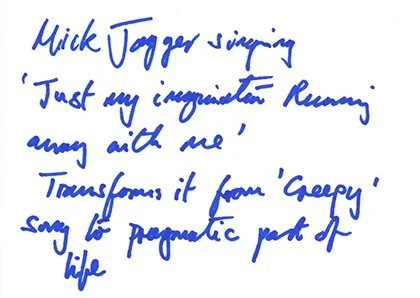 Mick Jagger singing
'Just my imagination Running
away with me'
Transforms it from 'Creepy'
song to pragmatic part of
life